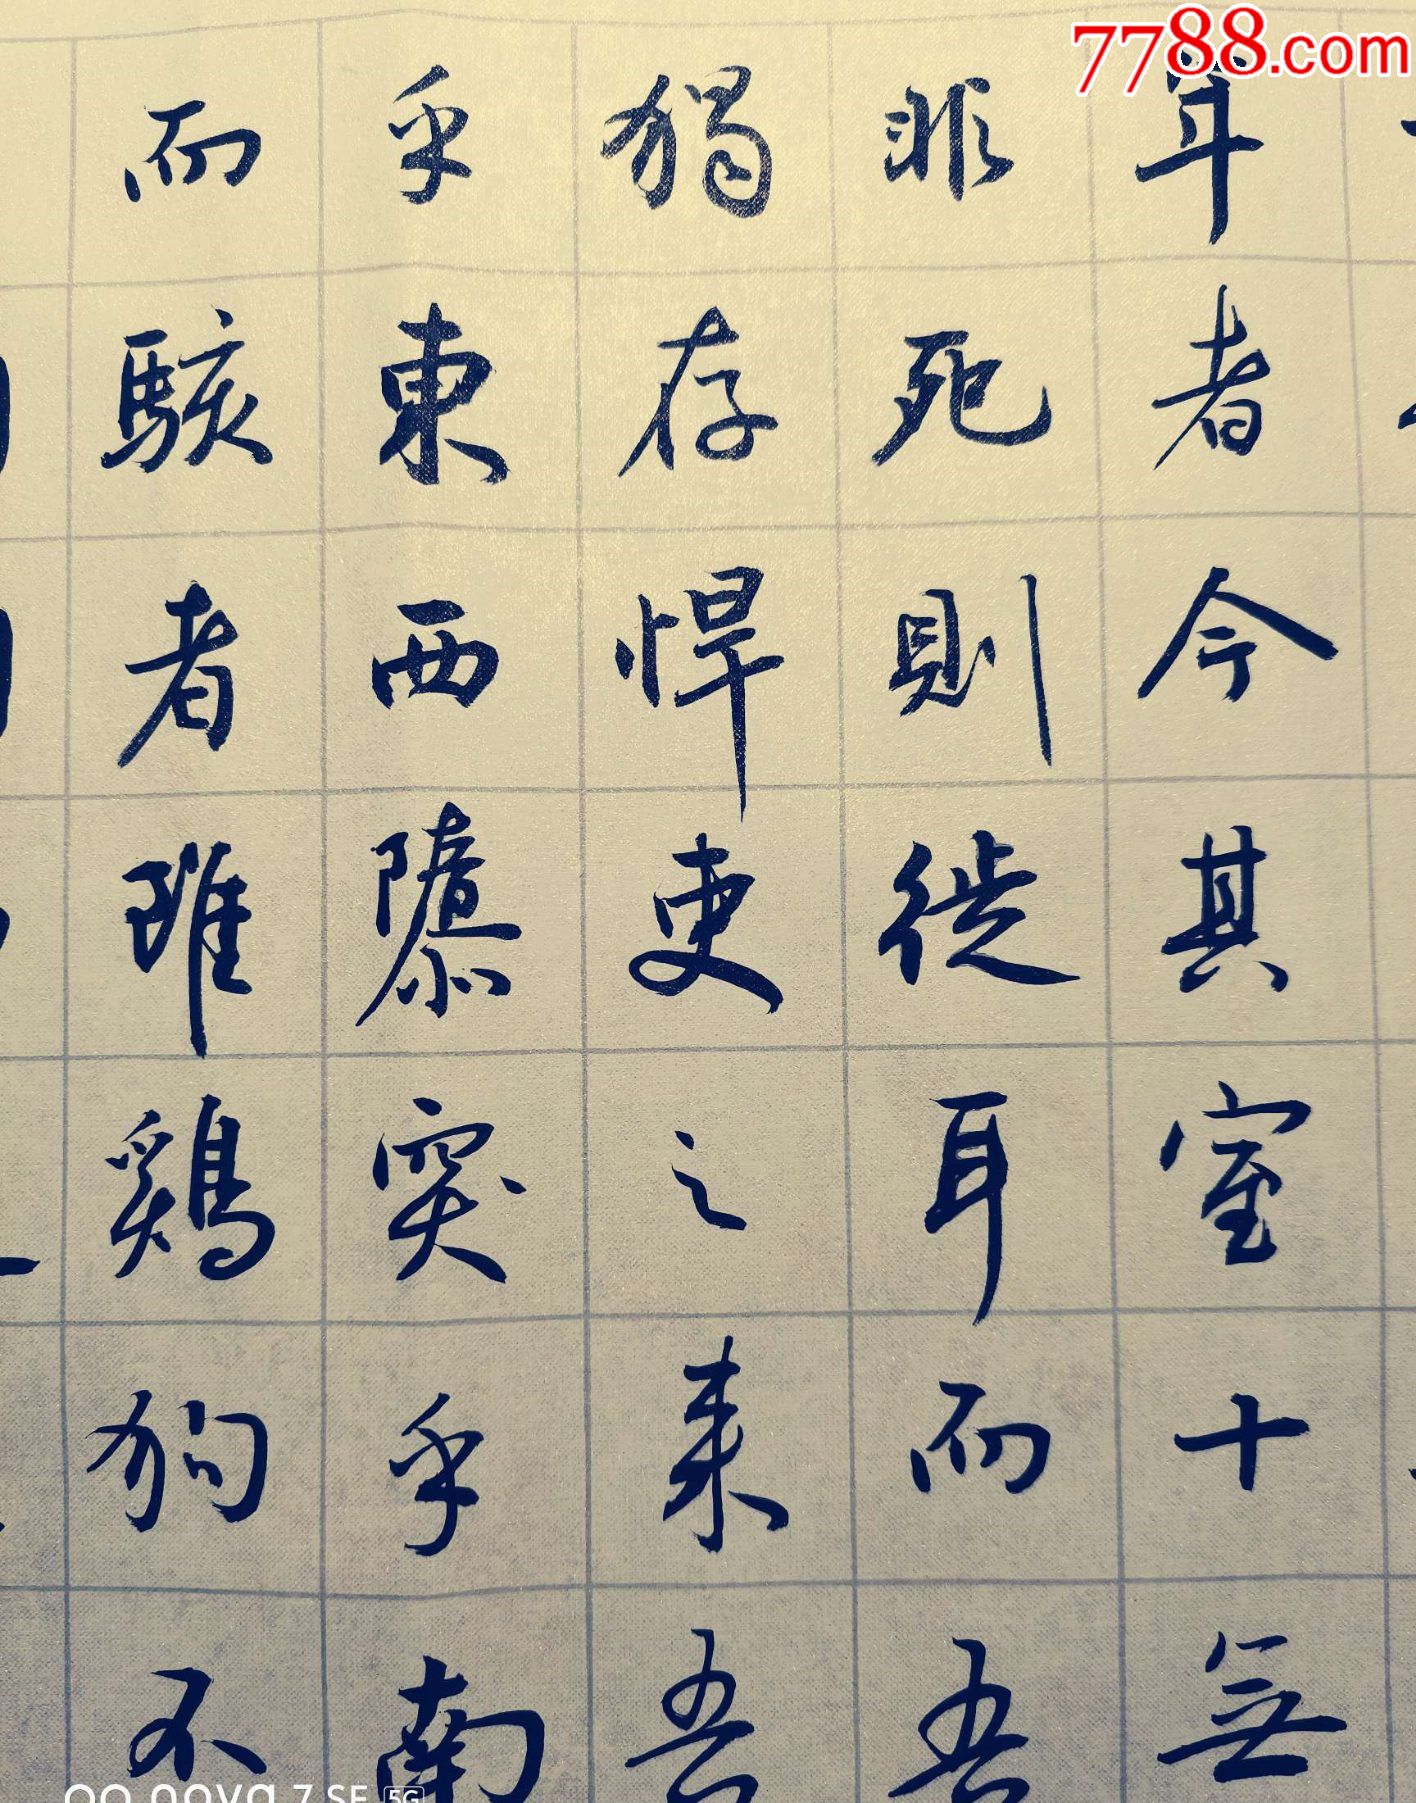 7788.com
年者今其室十無
非死則徙耳而吾
獨存悍吏之来吾
乎東西隳突乎南
而駭者雖鷄狗不
nova 7 SE 5G